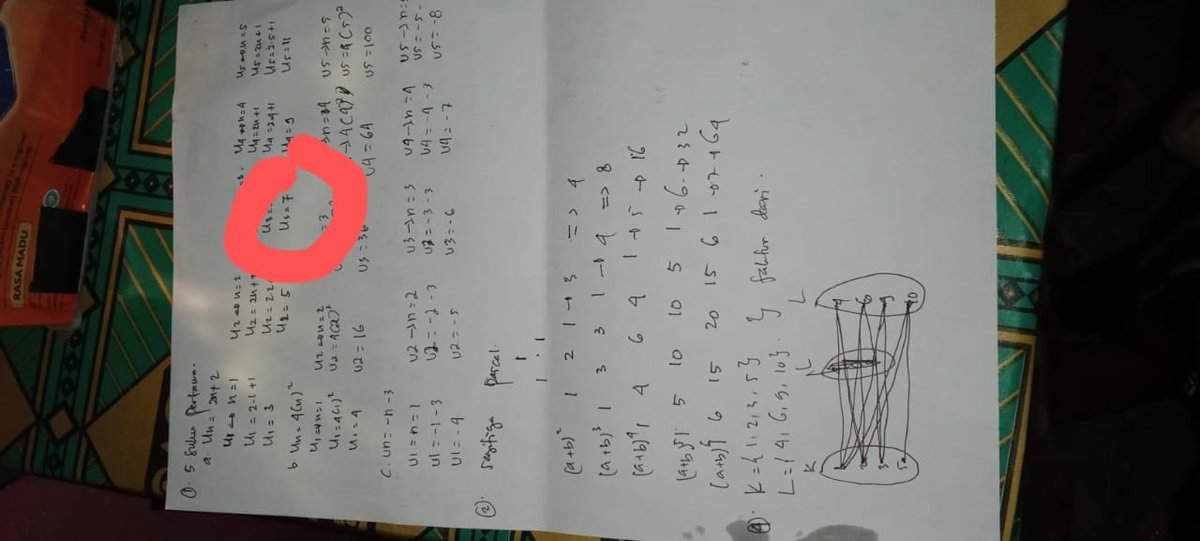 RASA MADU
①. 5 Suku Pertama.
a. Un = 2n + 2
U1 → n=1
U1 = 2.1 +1
U1 = 3
U2 → n=2
U2 = 2n+
U2 = 2.2
U2 = 5
U3 = 7
U4 → n=4
U4 = 2n+1
U4 = 2.4+1
U4 = 9
U5 → n=5
U5 = 2n+1
U5 = 2.5+1
U5 = 11
b. Un = 4(n)²
U1 → n=1
U1 = 4(1)²
U1 = 4
U2 → n=2
U2 = 4(2)²
U2 = 16
U3 = 36
U4 = 64
U5 → n=5
U5 = 4(5)²
U5 = 100
C. Un = -n -3
U1 = n = 1
U1 = -1 -3
U1 = -4
U2 → n=2
U2 = -2 -3
U2 = -5
U3 → n=3
U3 = -3 -3
U3 = -6
U4 → n=4
U4 = -4 -3
U4 = -7
U5 → n=
U5 = -5 -
U5 = -8
②. Segitiga Pascal.
1
1 . 1
(a+b)² 1 2 1 → 3 => 4
(a+b)³ 1 3 3 1 → 4 => 8
(a+b)⁴ 1 4 6 4 1 → 5 → 16
(a+b)⁵ 1 5 10 10 5 1 → 6 → 32
(a+b)⁶ 6 15 20 15 6 1 → 7 → 64
④. K = {1, 2, 3, 5}
L = {4, 6, 9, 10}. } faktor dari.
K L L
4
6
9
3
5
10